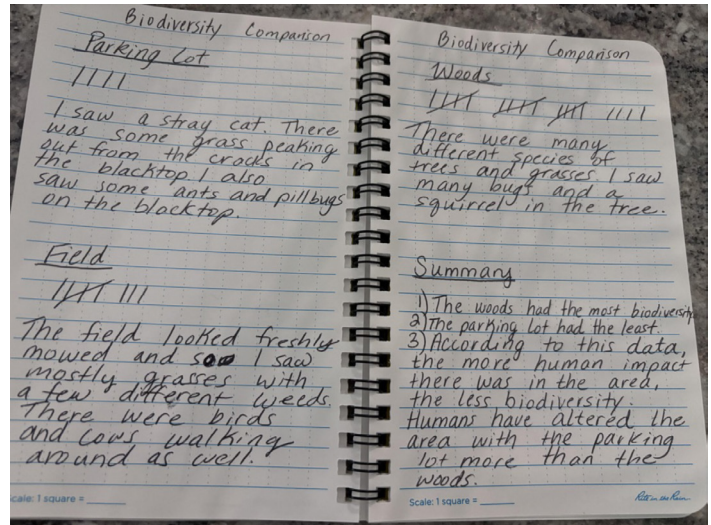 Biodiversity Comparison
Parking Lot
||||
I saw a stray cat. There
was some grass peaking
out from the cracks in
the blacktop. I also
saw some ants and pillbugs
on the blacktop.
Field
|||| |||
The field looked freshly
mowed and I saw
mostly grasses with
a few different weeds.
There were birds
and cows walking
around as well.
cale: 1 square = ______
Biodiversity Comparison
Woods
|||| |||| |||| ||||
There were many
different species of
trees and grasses. I saw
many bugs and a
squirrel in the tree.
Summary
1) The woods had the most biodiversity
2) The parking lot had the least.
3) According to this data,
the more human impact
there was in the area,
the less biodiversity.
Humans have altered the
area with the parking
lot more than the
woods.
Scale: 1 square = ______
Rite in the Rain